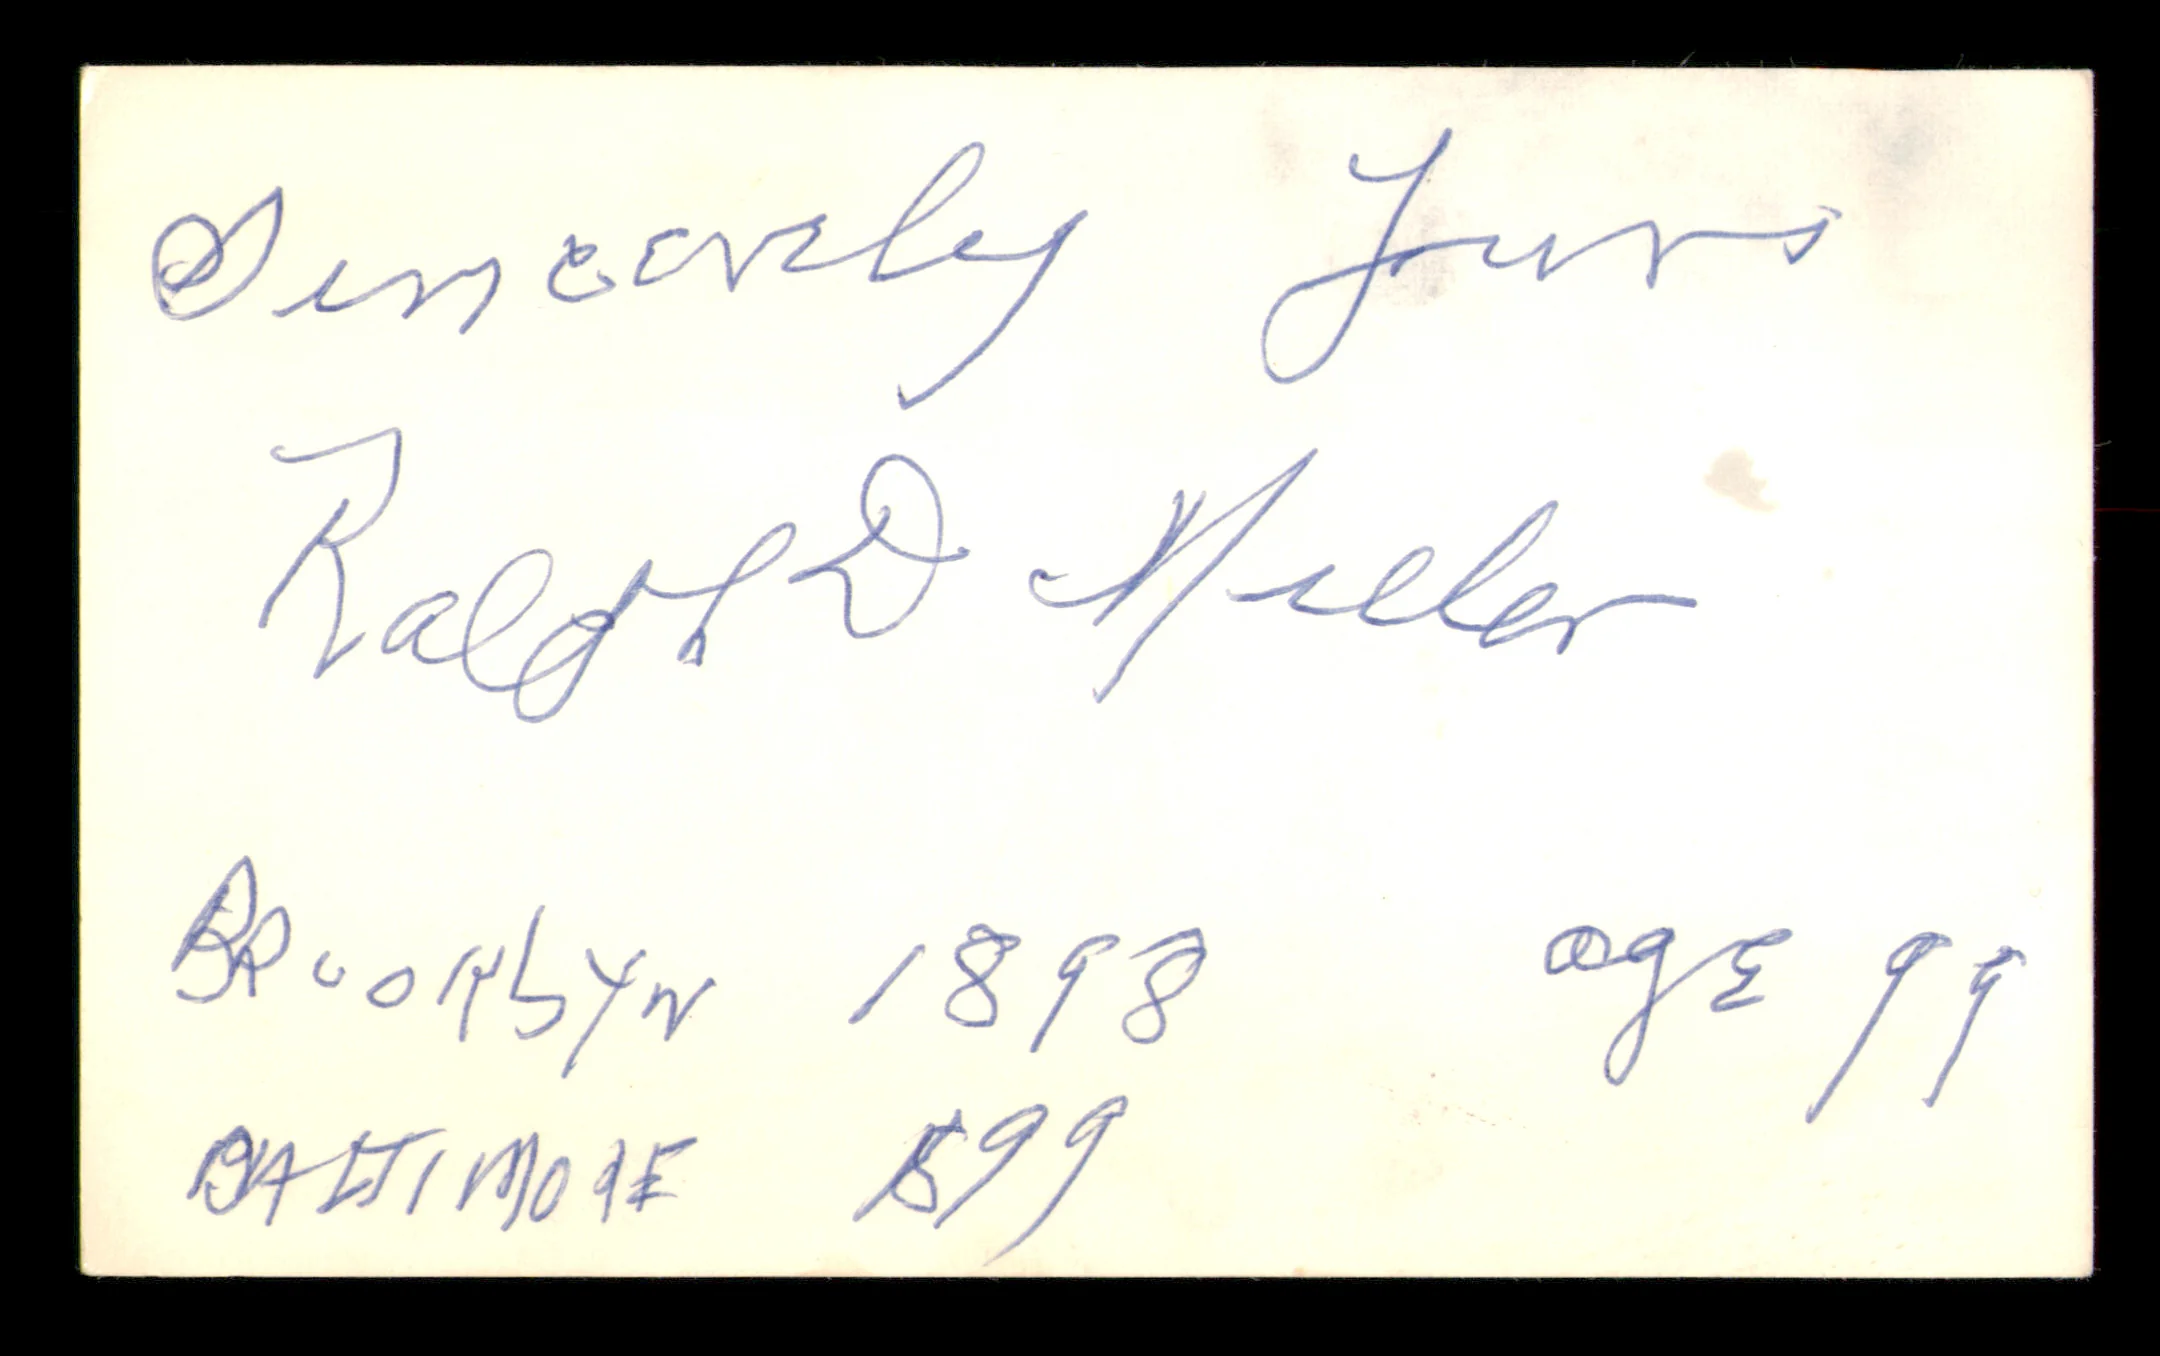 Sincerely Yours
Ralph D Miller
BROOKLYN 1898 age 99
BALTIMORE 1899